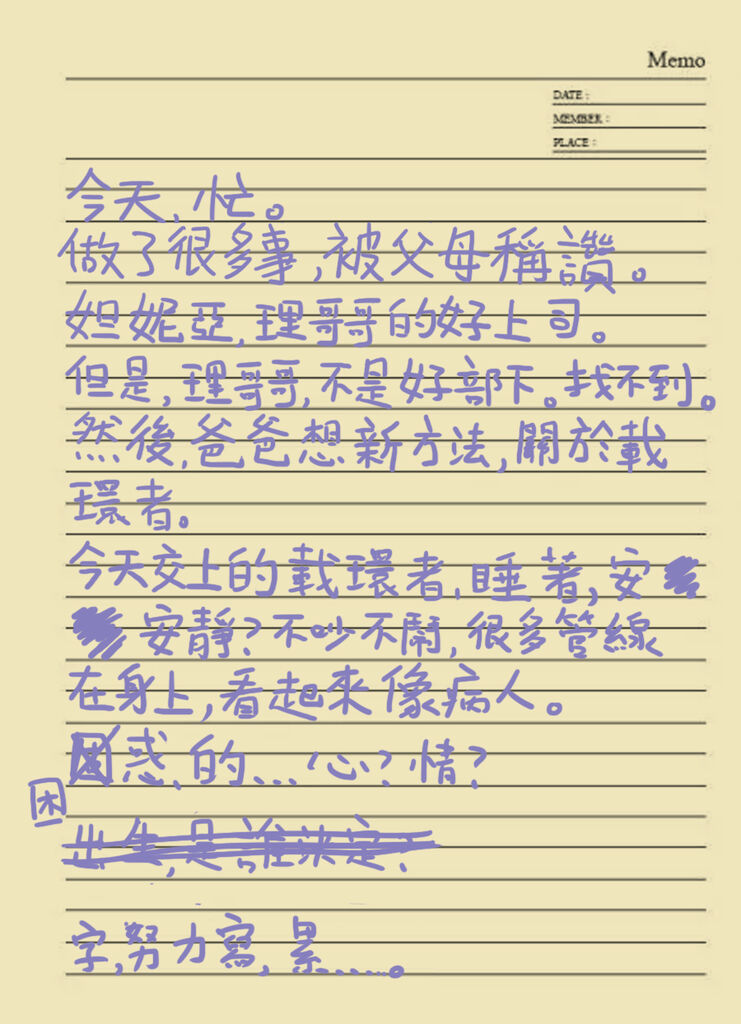 Memo
DATE :
MEMBER :
PLACE :
今天、忙。
做了很多事,被父母稱讚。
妲妮亞,理哥哥的好上司。
但是,理哥哥,不是好部下。找不到。
然後,爸爸想新方法,關於載
環者。
今天交上的載環者、睡著,安
安靜?不吵不鬧,很多管線
在身上,看起來像病人。
惑、的...心?情?
困
出生,是誰決定?
字,努力寫,累......。